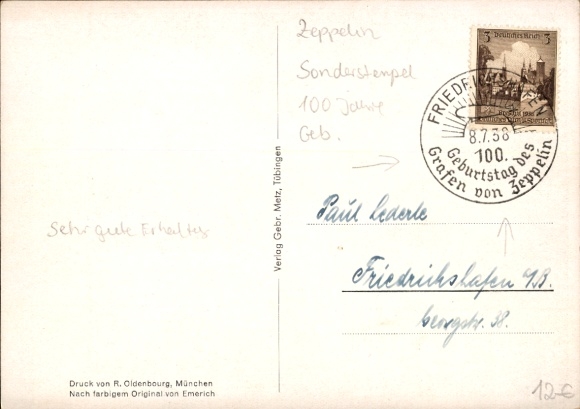 Zeppelin
Sonderstempel
100 Jahre
Geb.
3 Deutsches Reich 3
FRIEDRICHSHAFEN
8.7.38
100.
Geburtstag des
Grafen von Zeppelin
Verlag Gebr. Metz, Tübingen
Paul Lederle
Friedrichshafen a/B.
Georgstr. 38.
Sehr gute Erhaltg
Druck von R. Oldenbourg, München
Nach farbigem Original von Emerich
12-€